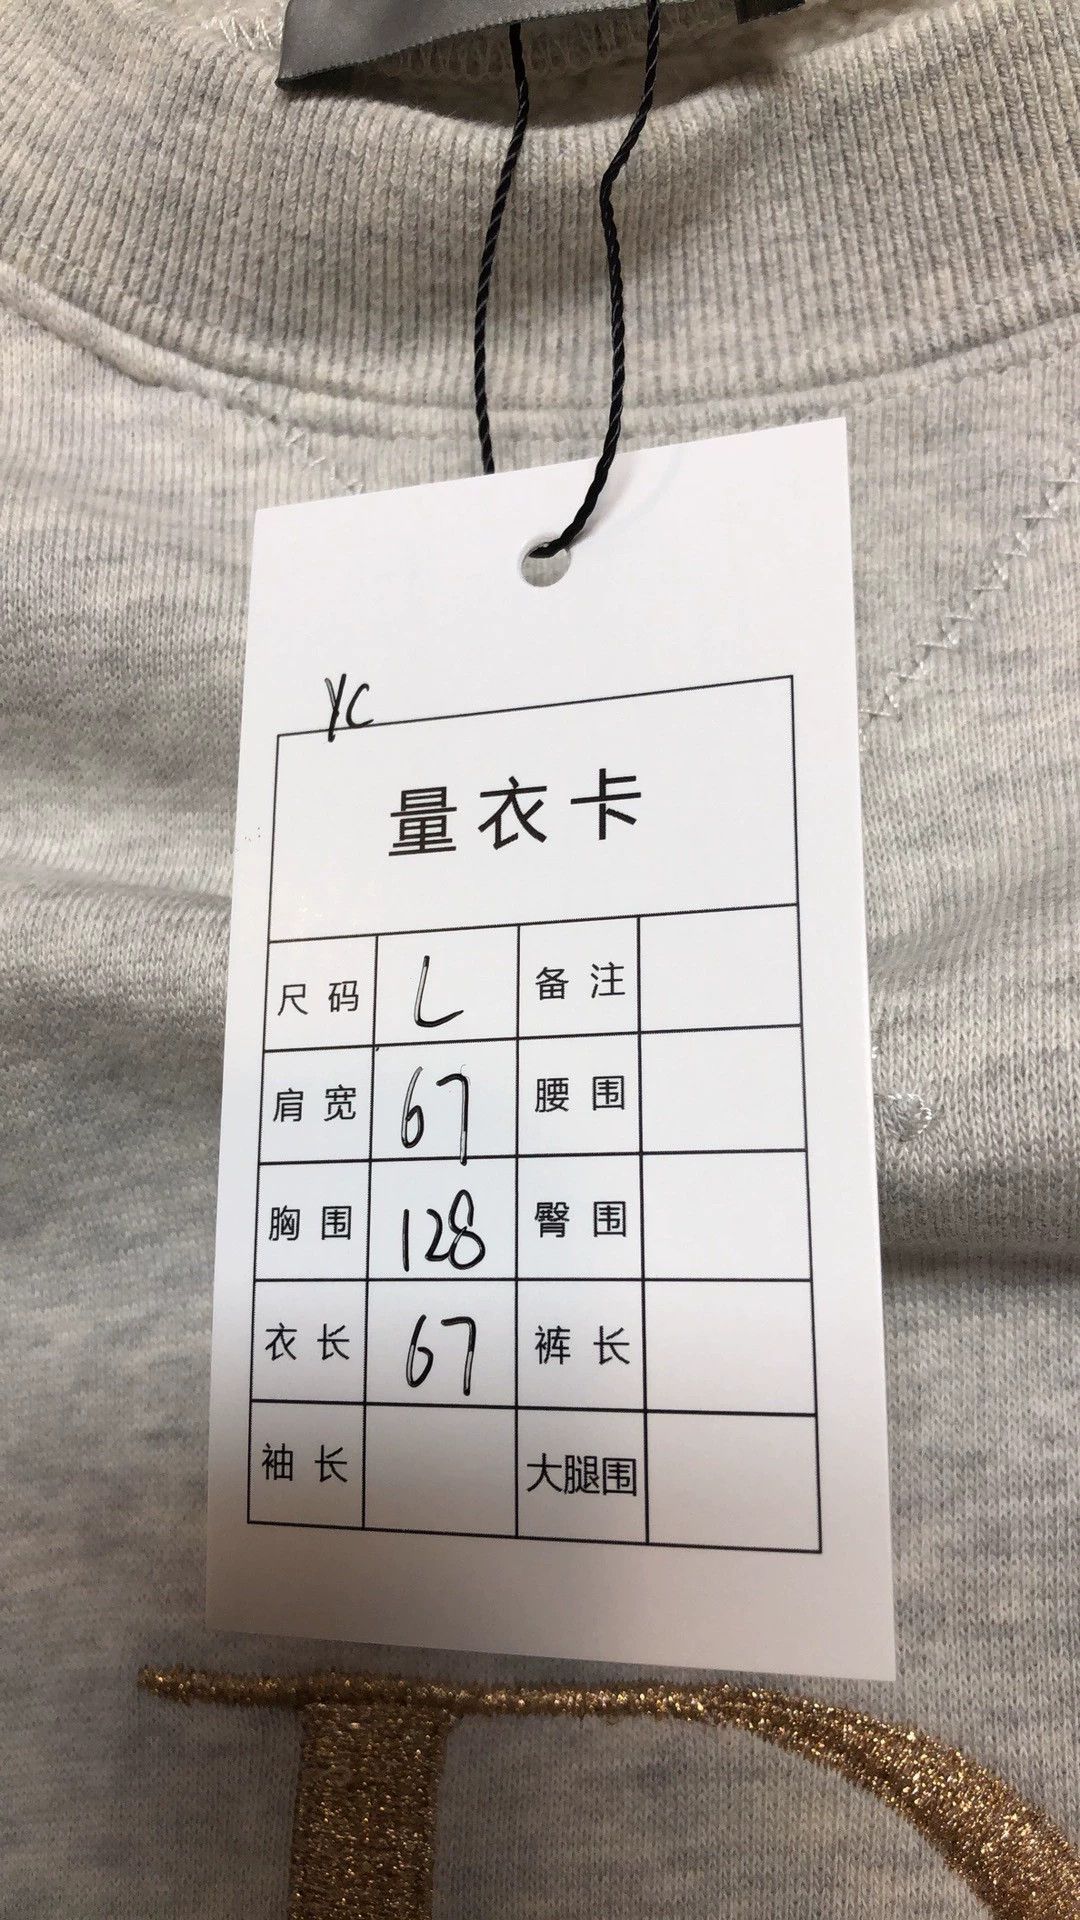 YC
量衣卡
尺码 L 备注
肩宽 67 腰围
胸围 128 臀围
衣长 67 裤长
袖长 大腿围